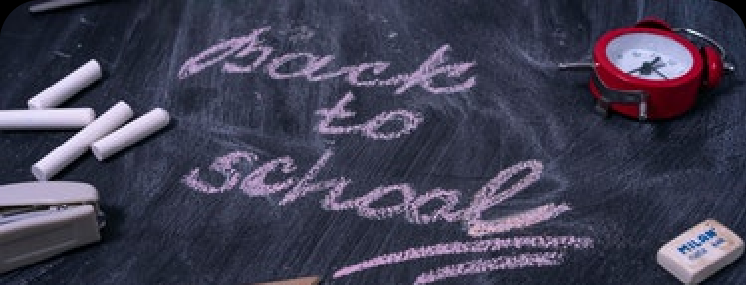 Back
to
school
MILAN